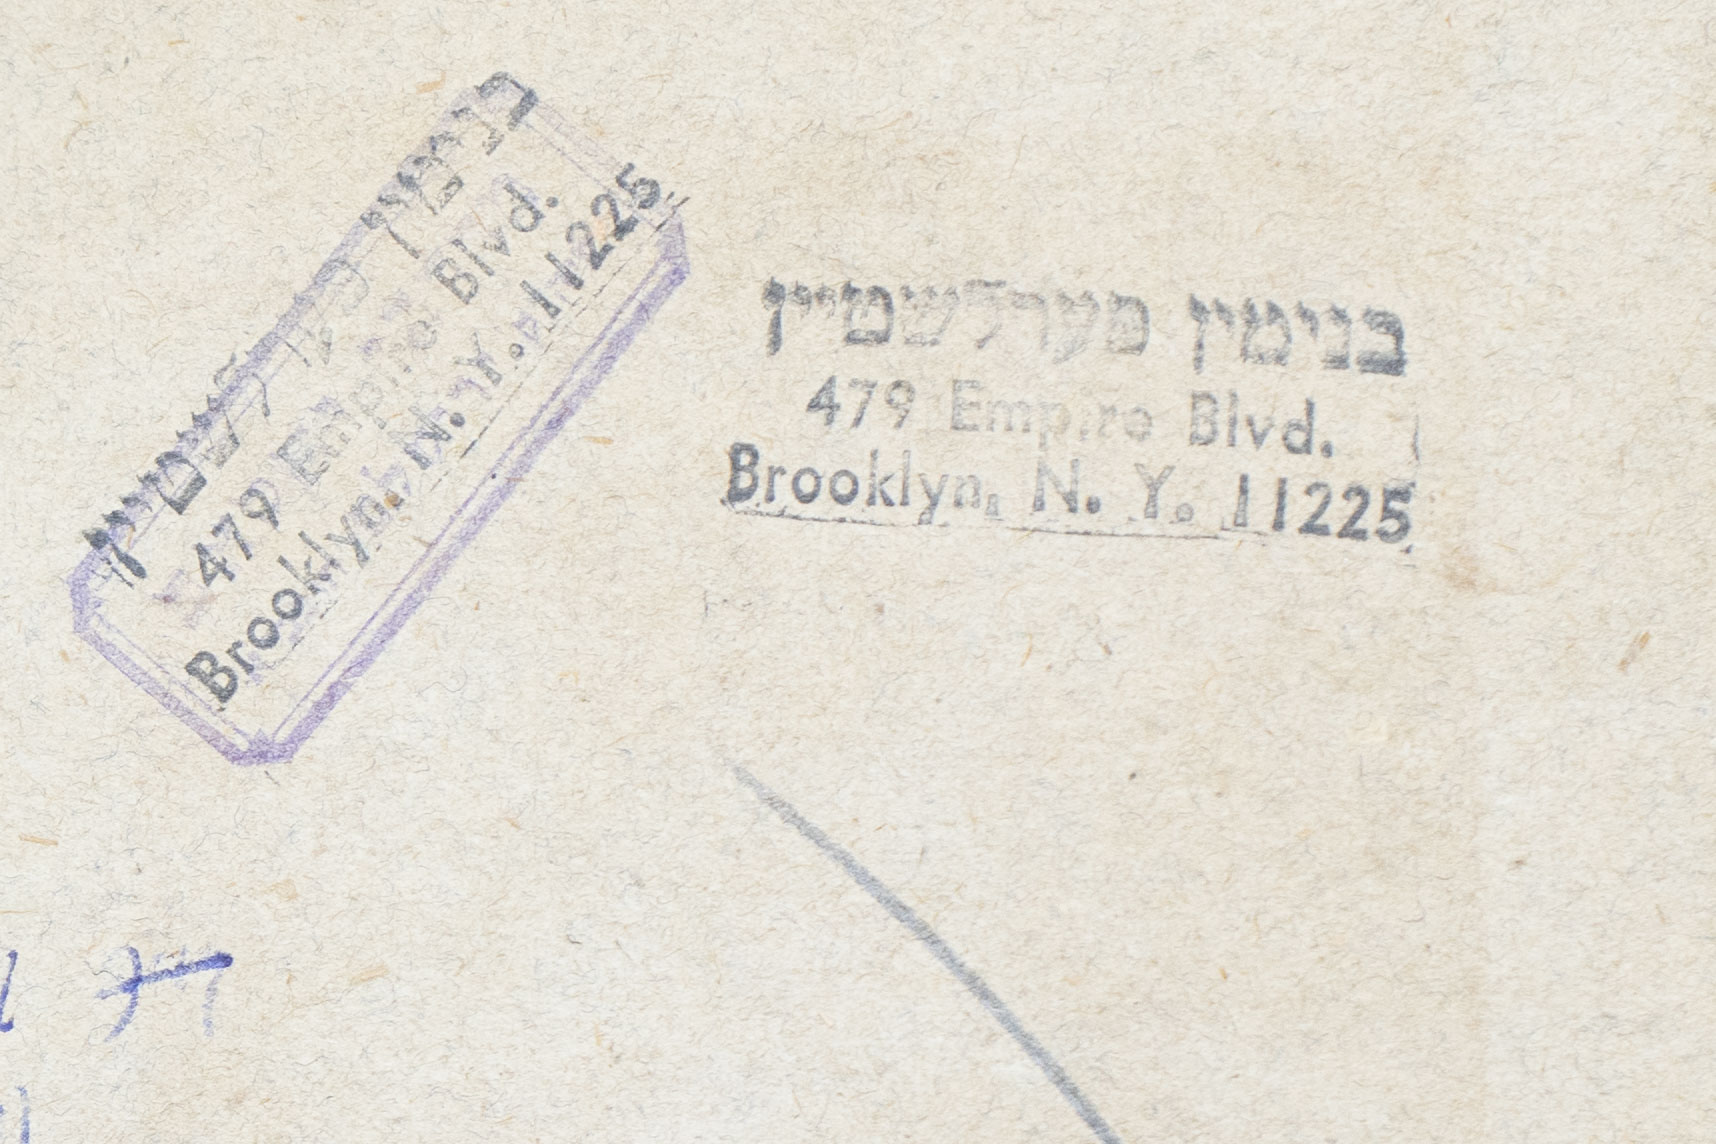 בנימין פערלשטיין
479 Empire Blvd.
Brooklyn, N. Y. 11225
בנימין פערלשטיין
479 Empire Blvd.
Brooklyn, N. Y. 11225